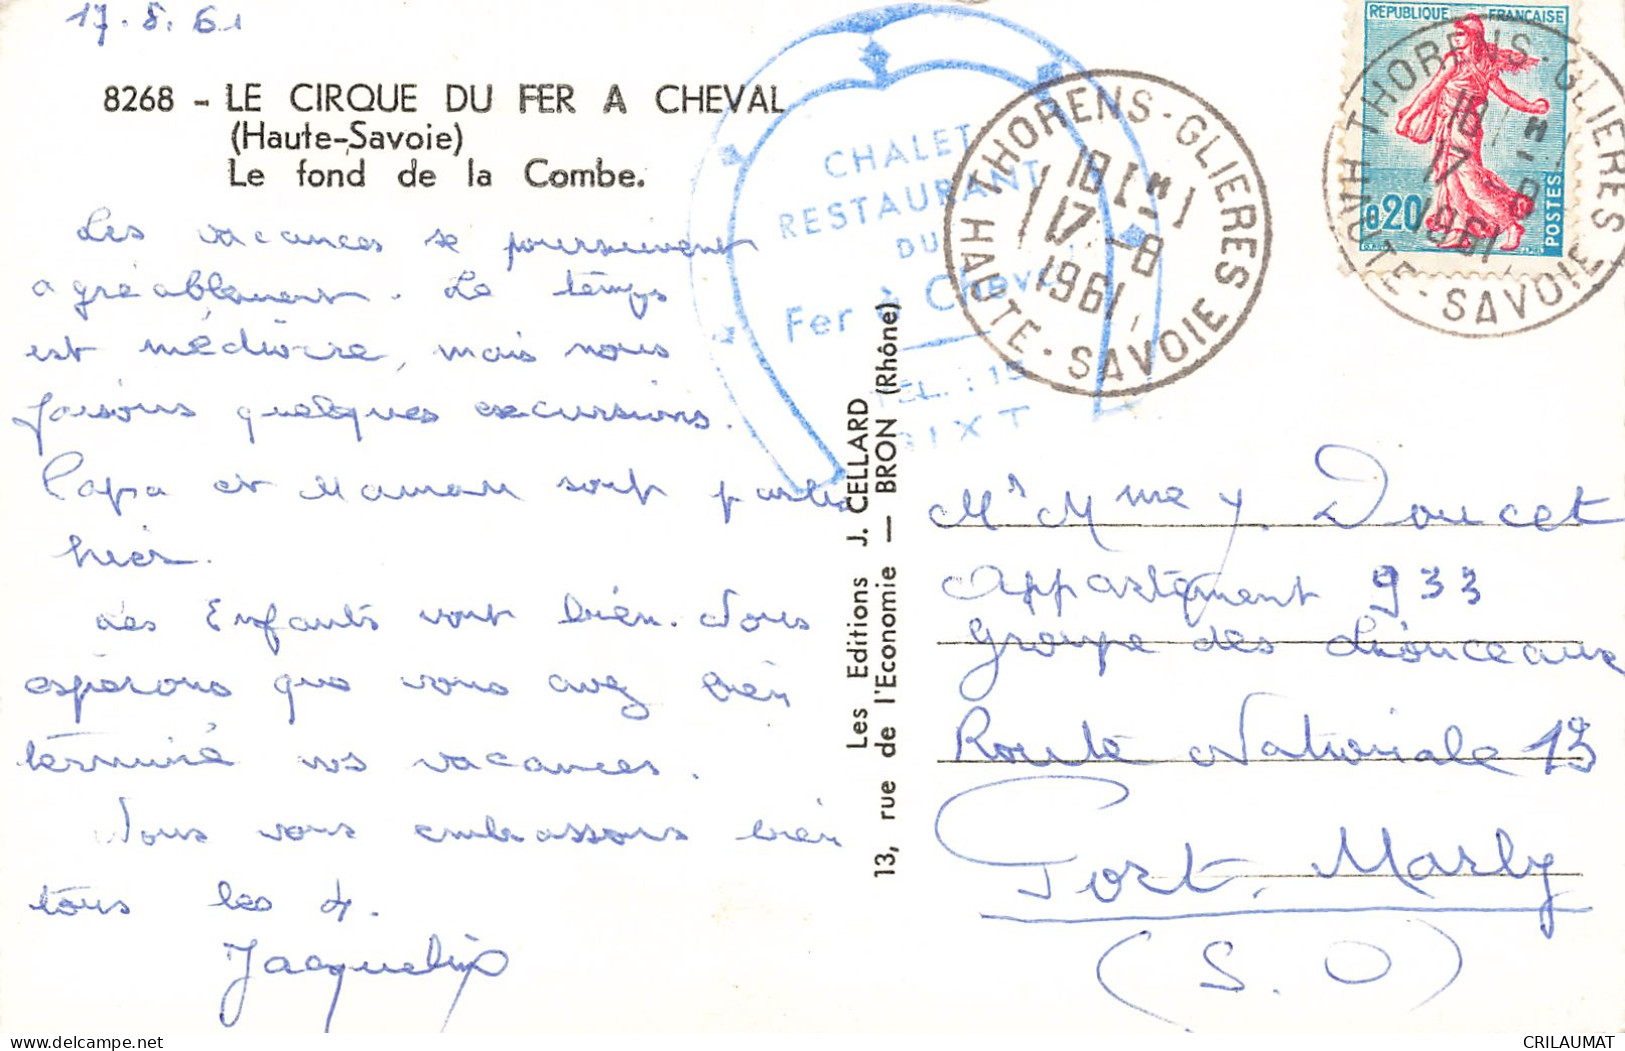 17.8.61
8268 - LE CIRQUE DU FER A CHEVAL
(Haute-Savoie)
Le fond de la Combe.
Les vacances se poursuivent
agréablement. Le temps
est médiocre, mais nous
faisons quelques excursions.
Papa et Maman sont partis
hier.
Les Enfants vont bien. Nous
espérons que vous avez bien
terminé vos vacances.
Nous vous embrassons bien
tous les 4.
Jacqueline
CHALET
RESTAURANT
DU
Fer à Cheval
TEL. : 15
SIXT
THORENS-GLIERES
18 H
17 -8
1961
HAUTE-SAVOIE
REPUBLIQUE FRANÇAISE
0,20
POSTES
THORENS-GLIERES
18 H
17 -8
1961
HAUTE-SAVOIE
Les Editions J. CELLARD
13, rue de l'Economie — BRON (Rhône)
Mr Mme Y. Doucet
Appartement 933
Groupe des Lionceaux
Route Nationale 13
Port. Marly
(S.O)
CRILAUMAT